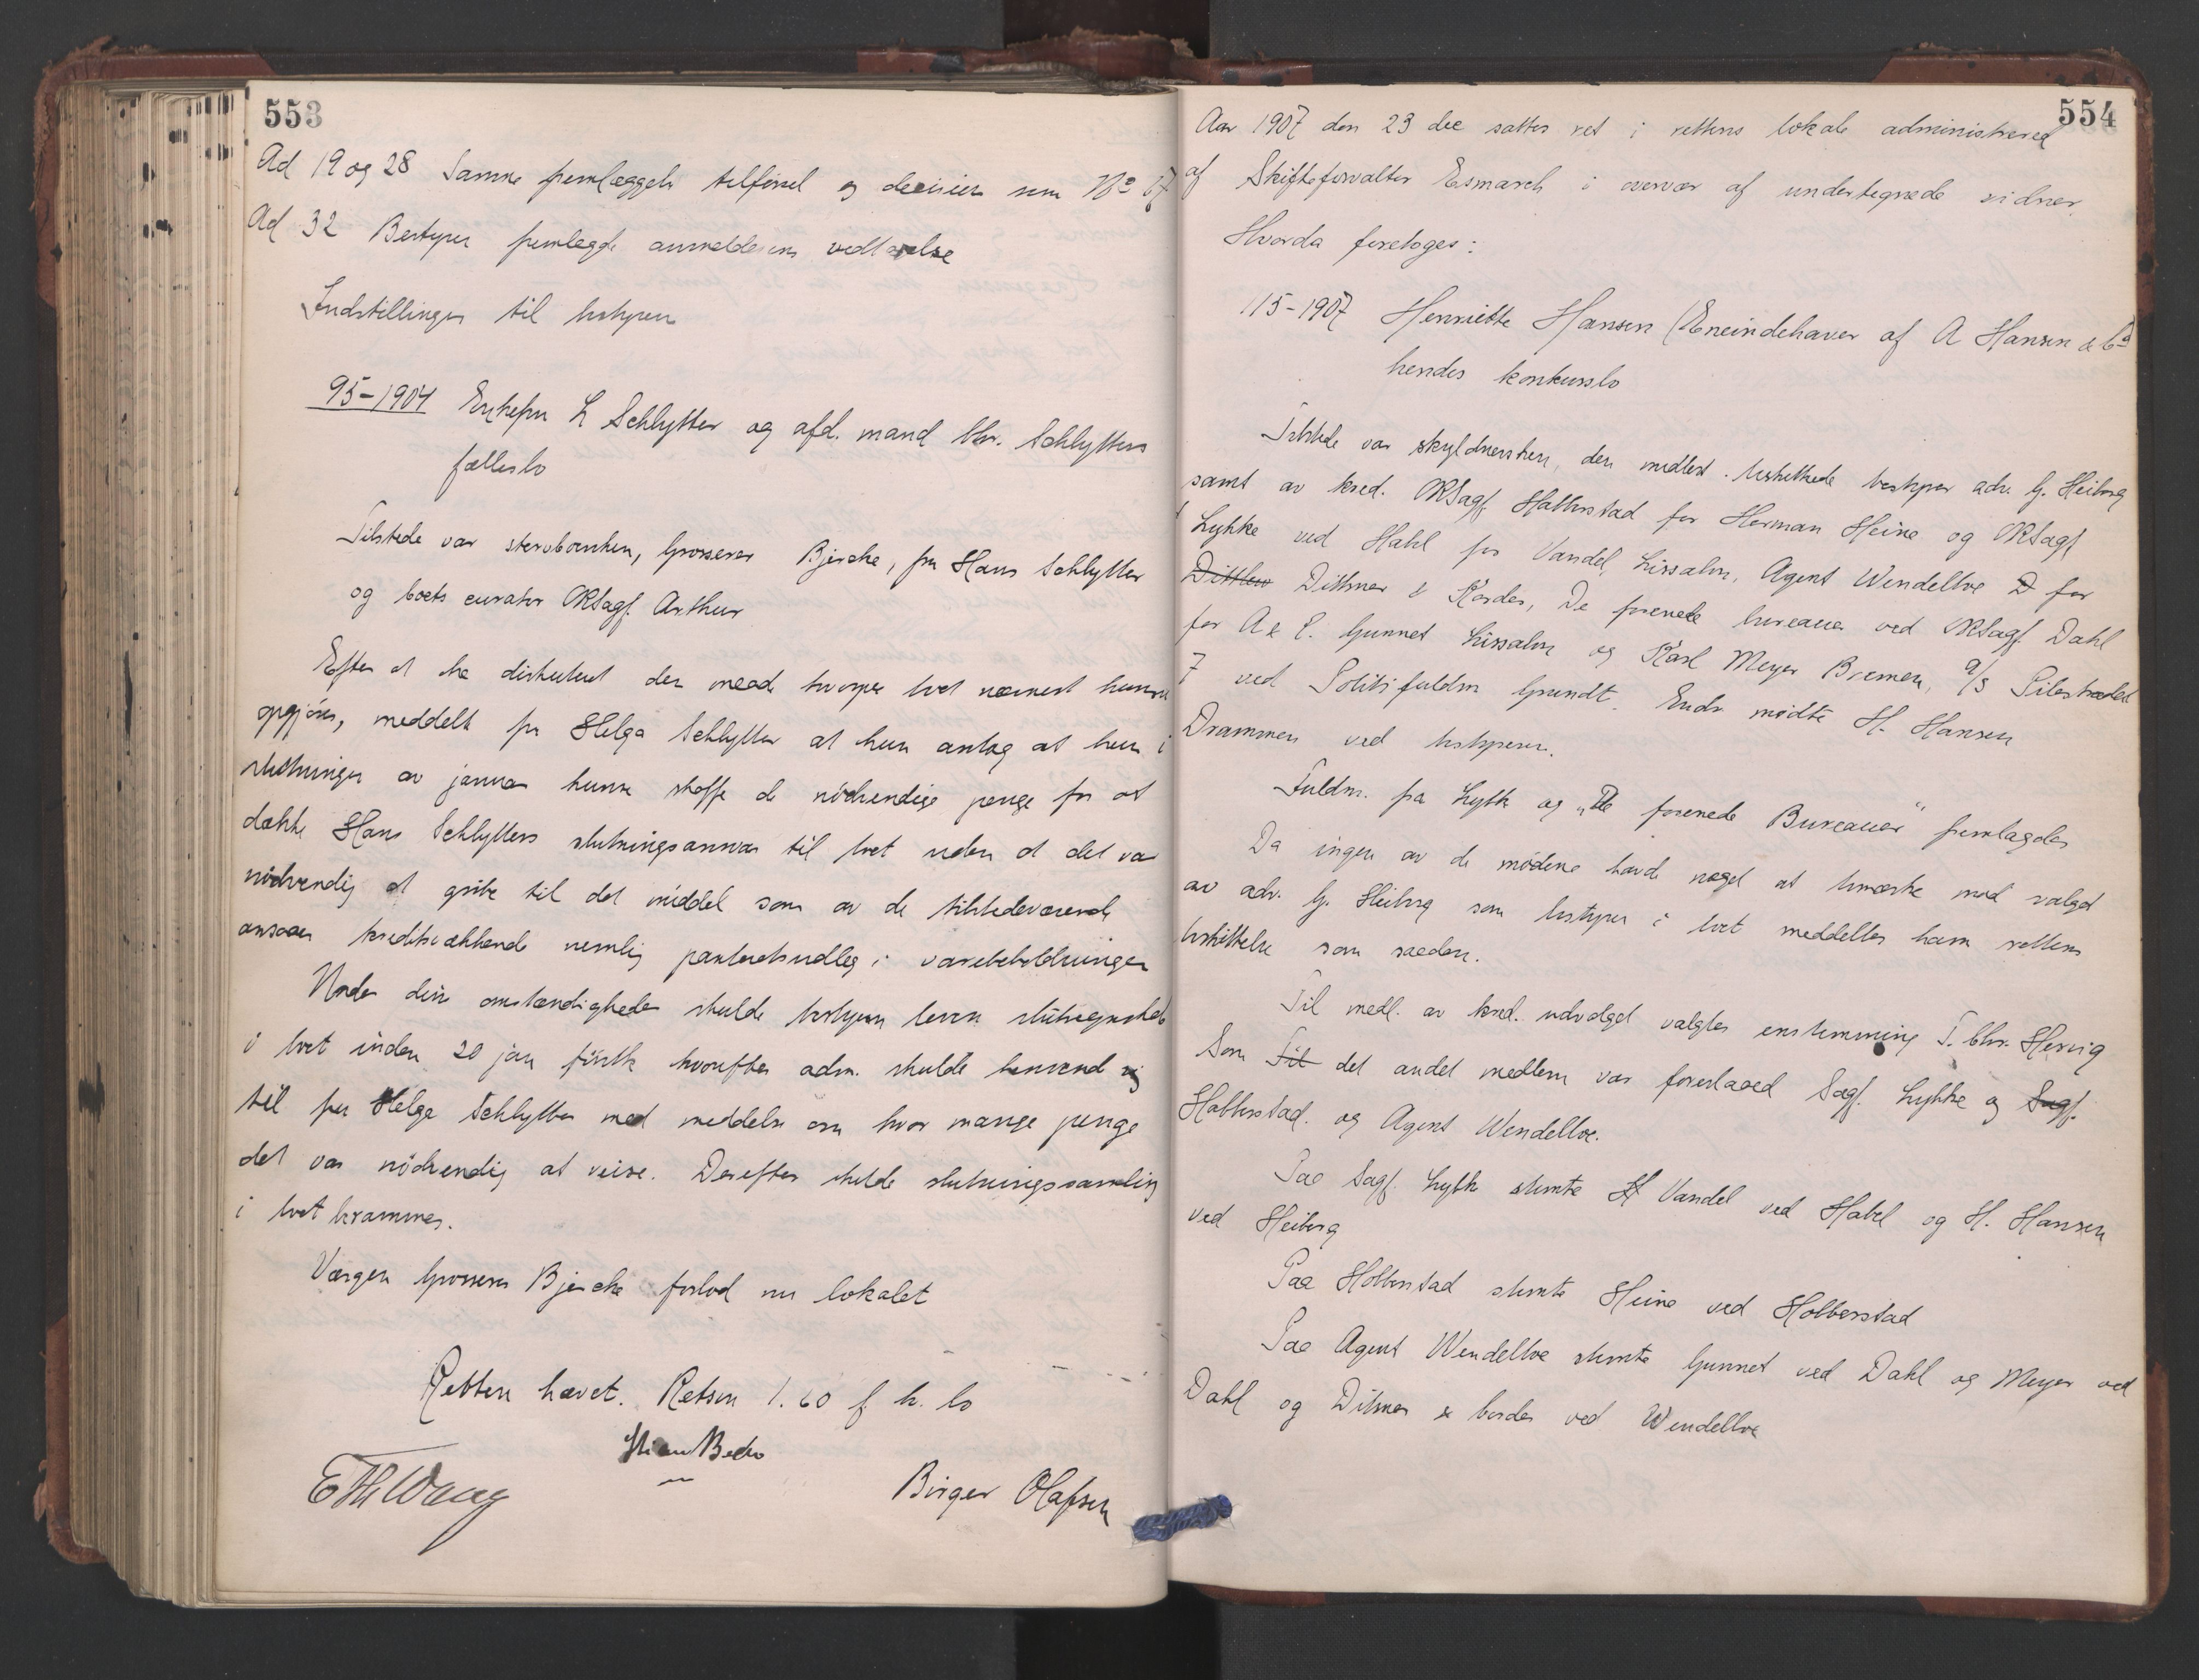 553
Ad 19 og 28 Samme fremlæggelse tilførsel og decision som No 67
Ad 32 Bestyren fremlagde anmelderens vedtagelse
Indstillingen til bestyren
95-1904 Enkefru L Schlytter og afd. mand Chr. Schlytters
fællesbo
Tilstede var stervboenken, Grosserer Bjercke, fru Hans Schlytter
og boets curator ORSagf. Arthur
Efter at ha diskuteret den maade hvorpaa boet nærmest kunde
opgjøres, meddelte fru Helga Schlytter at hun antog at hun i
slutningen av januar kunde skaffe de nødvendige penge for at
dække Hans Schlytters slutningsansvar til boet uden at det var
nødvendig at gribe til det middel som av de tilstedeværende
ansaaes kreditsvækkende nemlig panteretsudlæg i varebeholdningen
Under disse omstændigheder skulde bestyren levere slutregnskab
i boet inden 20 jan førstk hvorefter adm. skulde henvend sig
til fru Helga Schlytter med meddelelse om hvor mange penge
det var nødvendig at reise. Derefter skulde slutningssamling
i boet berammes.
Værgen Grosserer Bjercke forlod nu lokalet
Retten hævet. Retsm 1.60 f k. bo
EThWang
Birger Olafsen
554
Aar 1907 den 23 dec sattes ret i rettens lokale administreret
af Skifteforvalter Esmarch i overvær af undertegnede vidner.
Hvorda foretoges:
115-1907 Henriette Hansen (Eneindehaver af A Hansen & Co
hendes konkursbo
Tilstede var skyldnersken, den midlert. beskikkede bestyrer adv. G. Heiberg
samt av kred. ORSagf. Halberstad for Herman Heine og ORSagf
Lykke ved Hahl for Vandel, Lissabon, Agent Wendelboe D for
Dittlev Dithmer & Kordes, De forenede bureauer ved ORSagf. Dahl
for A & C. Gunnet Lissabon og Karl Meyer Bremen, A/S Pilestrædet
7 ved Politifuldm Grundt. Endv. mødte H. Hansen
Drammen ved bestyreren.
Fuldm. fra Lykke og "De forenede Bureauer" fremlagdes
Da ingen av de mødene havde noget at bemærke mod valget
av adv. G. Heiberg som bestyrer i boet meddeltes ham rettens
beskikkelse som saadan.
Til medl. av kred. udvalget valgtes enstemmig T. Chr. Hervig
Som Til det andet medlem var foreslaaed Sagf. Lykke og Sagf.
Halberstad. og Agent Wendelboe.
Paa Sagf. Lykke stemte H Vandel ved Hahl og H. Hansen
ved Heiberg
Paa Holberstad stemte Heine ved Holberstad
Paa Agent Wendelboe stemte Gunnet ved Dahl og Meyer ved
Dahl og Ditmer & Cordes ved Wendelboe